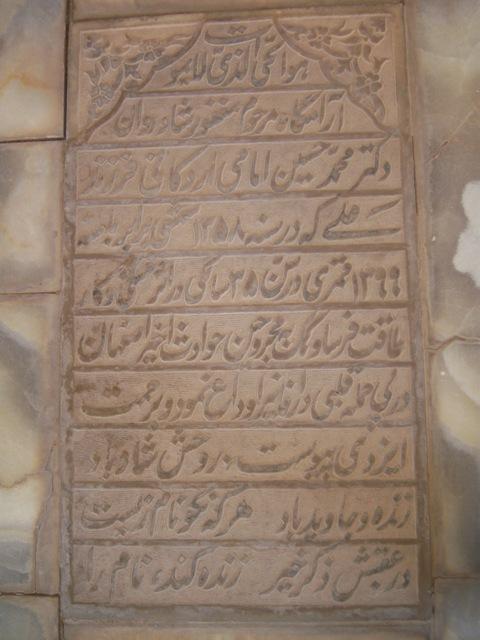 هوالحی الذی لایموت
آرامگاه مرحوم مغفور شادروان
دکتر محمد حسین امامی اردکانی فرزند
علی که در سنه ۱۳۵۸ شمسی برابر با
۱۳۹۹ قمری در سن ۳۵ سالگی در اثر خستگی و کار
طاقت فرسا و کمک بمجروحین حوادث اخیر اصفهان
در پی حمله قلبی دار فانی را وداع نمود و برحمت
ایزدی پیوست. روحش شاد باد
زنده و جاوید باد هر که نکو نام زیست
در عقبش ذکر خیر زنده کند نام را